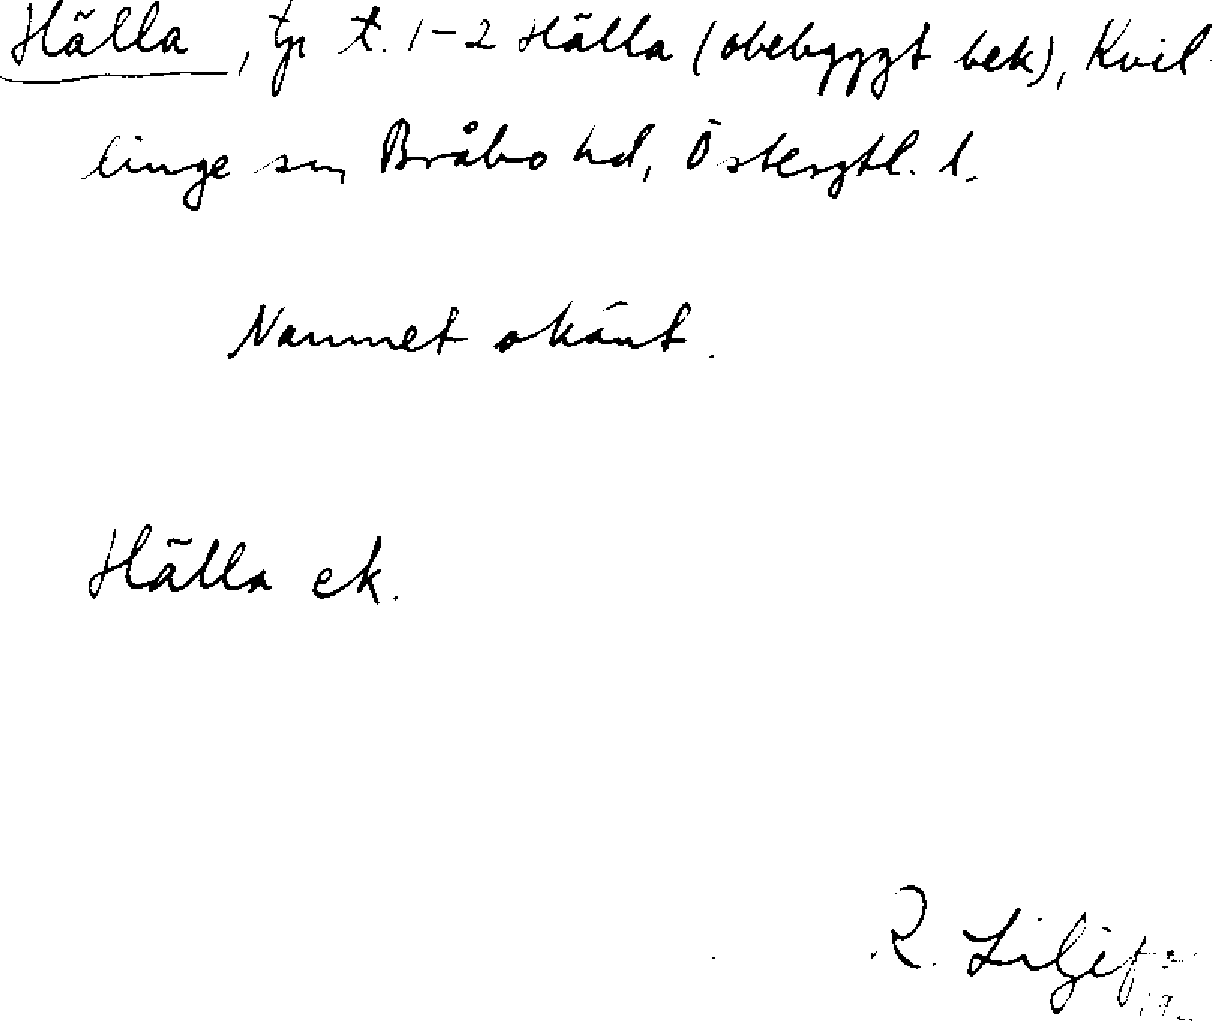 Hälla, tp t. 1-2 Hälla (obebyggt bek), Kvil-
linge sn, Bråbo hd, Östergtl. l.
Namnet okänt.
Hälla ek.
R. Liljef